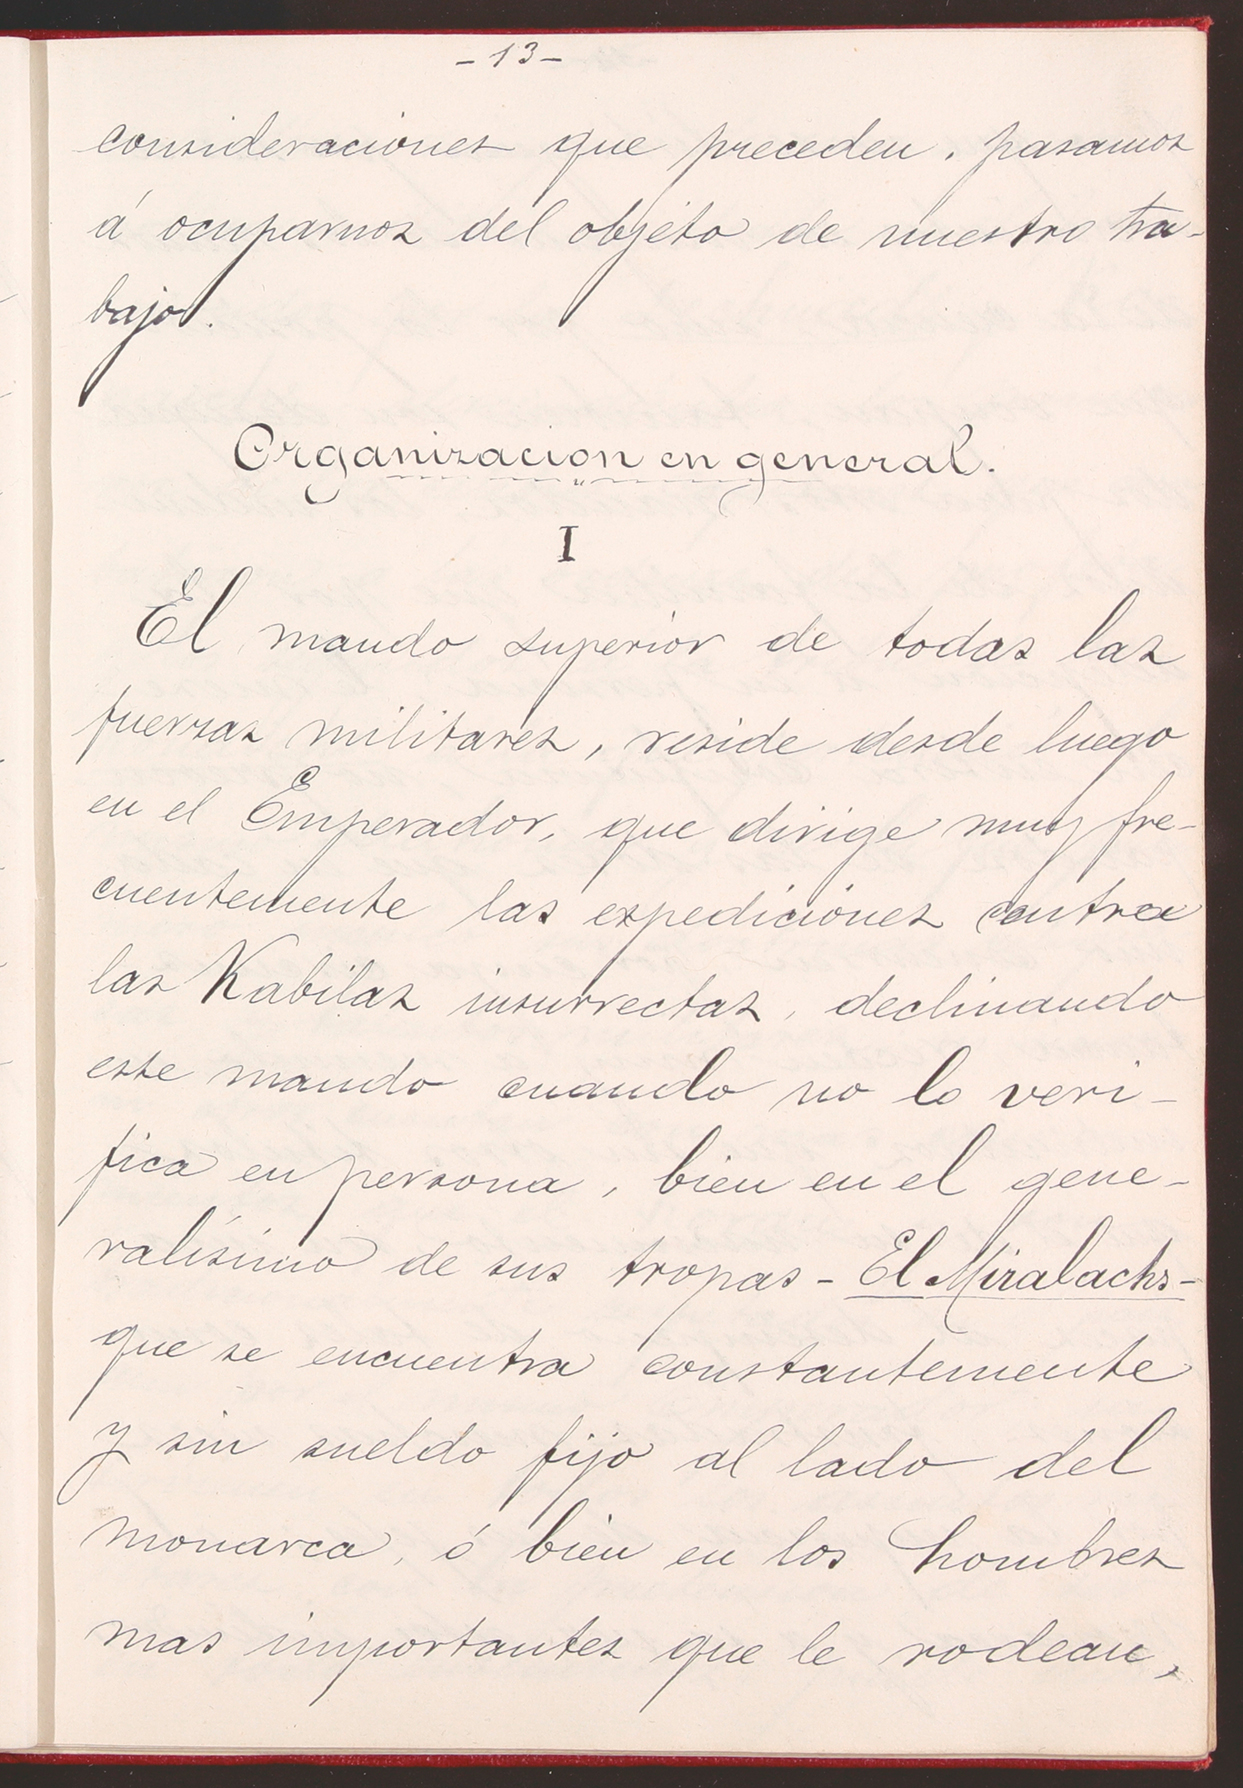 - 13 -
consideraciones que preceden, pasamos
á ocuparnos del objeto de nuestro tra-
bajo.
Organizacion en general.
I
El mando superior de todas las
fuerzas militares, reside desde luego
en el Emperador, que dirige muy fre-
cuentemente las expediciones contra
las Kabilas insurrectas, declinando
este mando cuando no lo veri-
fica en persona, bien en el gene-
ralísimo de sus tropas - El Miralachs -
que se encuentra constantemente
y sin sueldo fijo al lado del
monarca, ó bien en los hombres
mas importantes que le rodean,